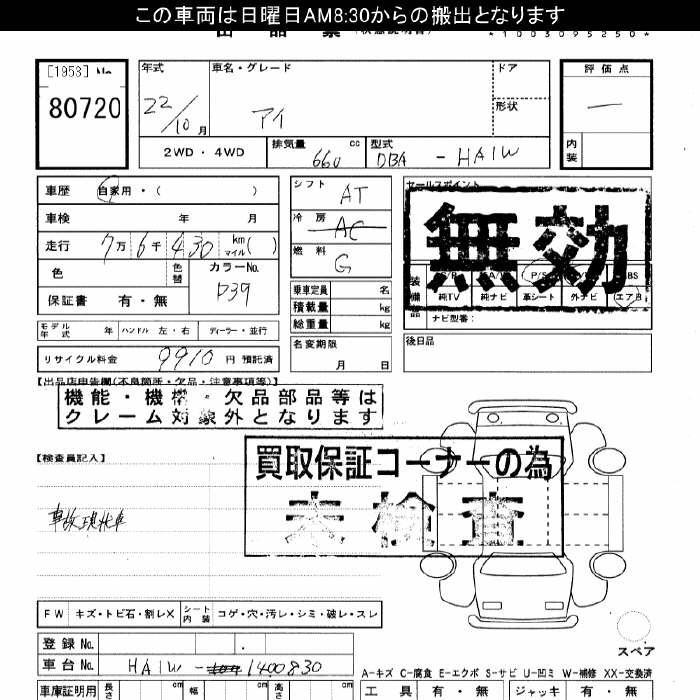 この車両は日曜日AM8:30からの搬出となります
*1003095250*
[1953] No.
80720
年式 車名・グレード ドア 評価点
22/10月 アイ 形状 —
2WD・4WD 排気量 660 cc 型式 DBA - HA1W 内装
車歴 自家用・( )
車検 年 月
走行 7万6千430 km マイル ( )
色 色替 カラーNo.
D39
保証書 有・無
モデル年式 年 ハンドル 左・右 ディーラー・並行
リサイクル料金 9910 円 預託済
シフト AT
冷房 AC
燃料 G
乗車定員 名
積載量 kg
総重量 kg
名変期限
月 日
セールスポイント
無効
装備品 P/S ABS
純TV 純ナビ 革シート 外ナビ エアB
ナビ型番:
後日品
【出品店申告欄(不良箇所・欠品・注意事項等)】
機能・機構・欠品部品等は
クレーム対象外となります
【検査員記入】
買取保証コーナーの為
未検査
事故現状車
FW キズ・トビ石・割レX シート内装 コゲ・穴・汚レ・シミ・破レ・スレ
スペア
登録No.
車台No. HA1W-1400830
A-キズ C-腐食 E-エクボ S-サビ U-凹ミ W-補修 XX-交換済
車庫証明用 長さ cm 幅 cm 高さ cm 工具 有・無 ジャッキ 有・無